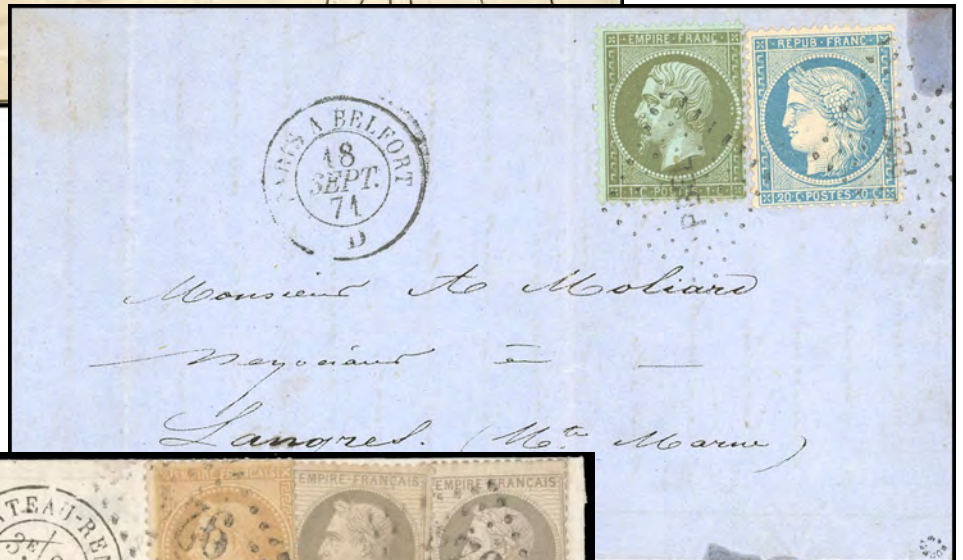 EMPIRE FRANC
1 C POSTES 1 C
REPUB FRANC
20 C POSTES 20 C
PARIS A BELFORT
18
SEPT.
71
D
Monsieur A Moliard
Negociant à
Langres. (Hte Marne)
EMPIRE FRANÇAIS
EMPIRE FRANÇAIS